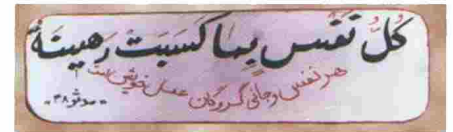 كُلُّ نَفْسٍ بِمَا كَسَبَتْ رَهِينَةٌ
هر نفس و جانی گروگان عمل خویش است
مدثر ۳۸